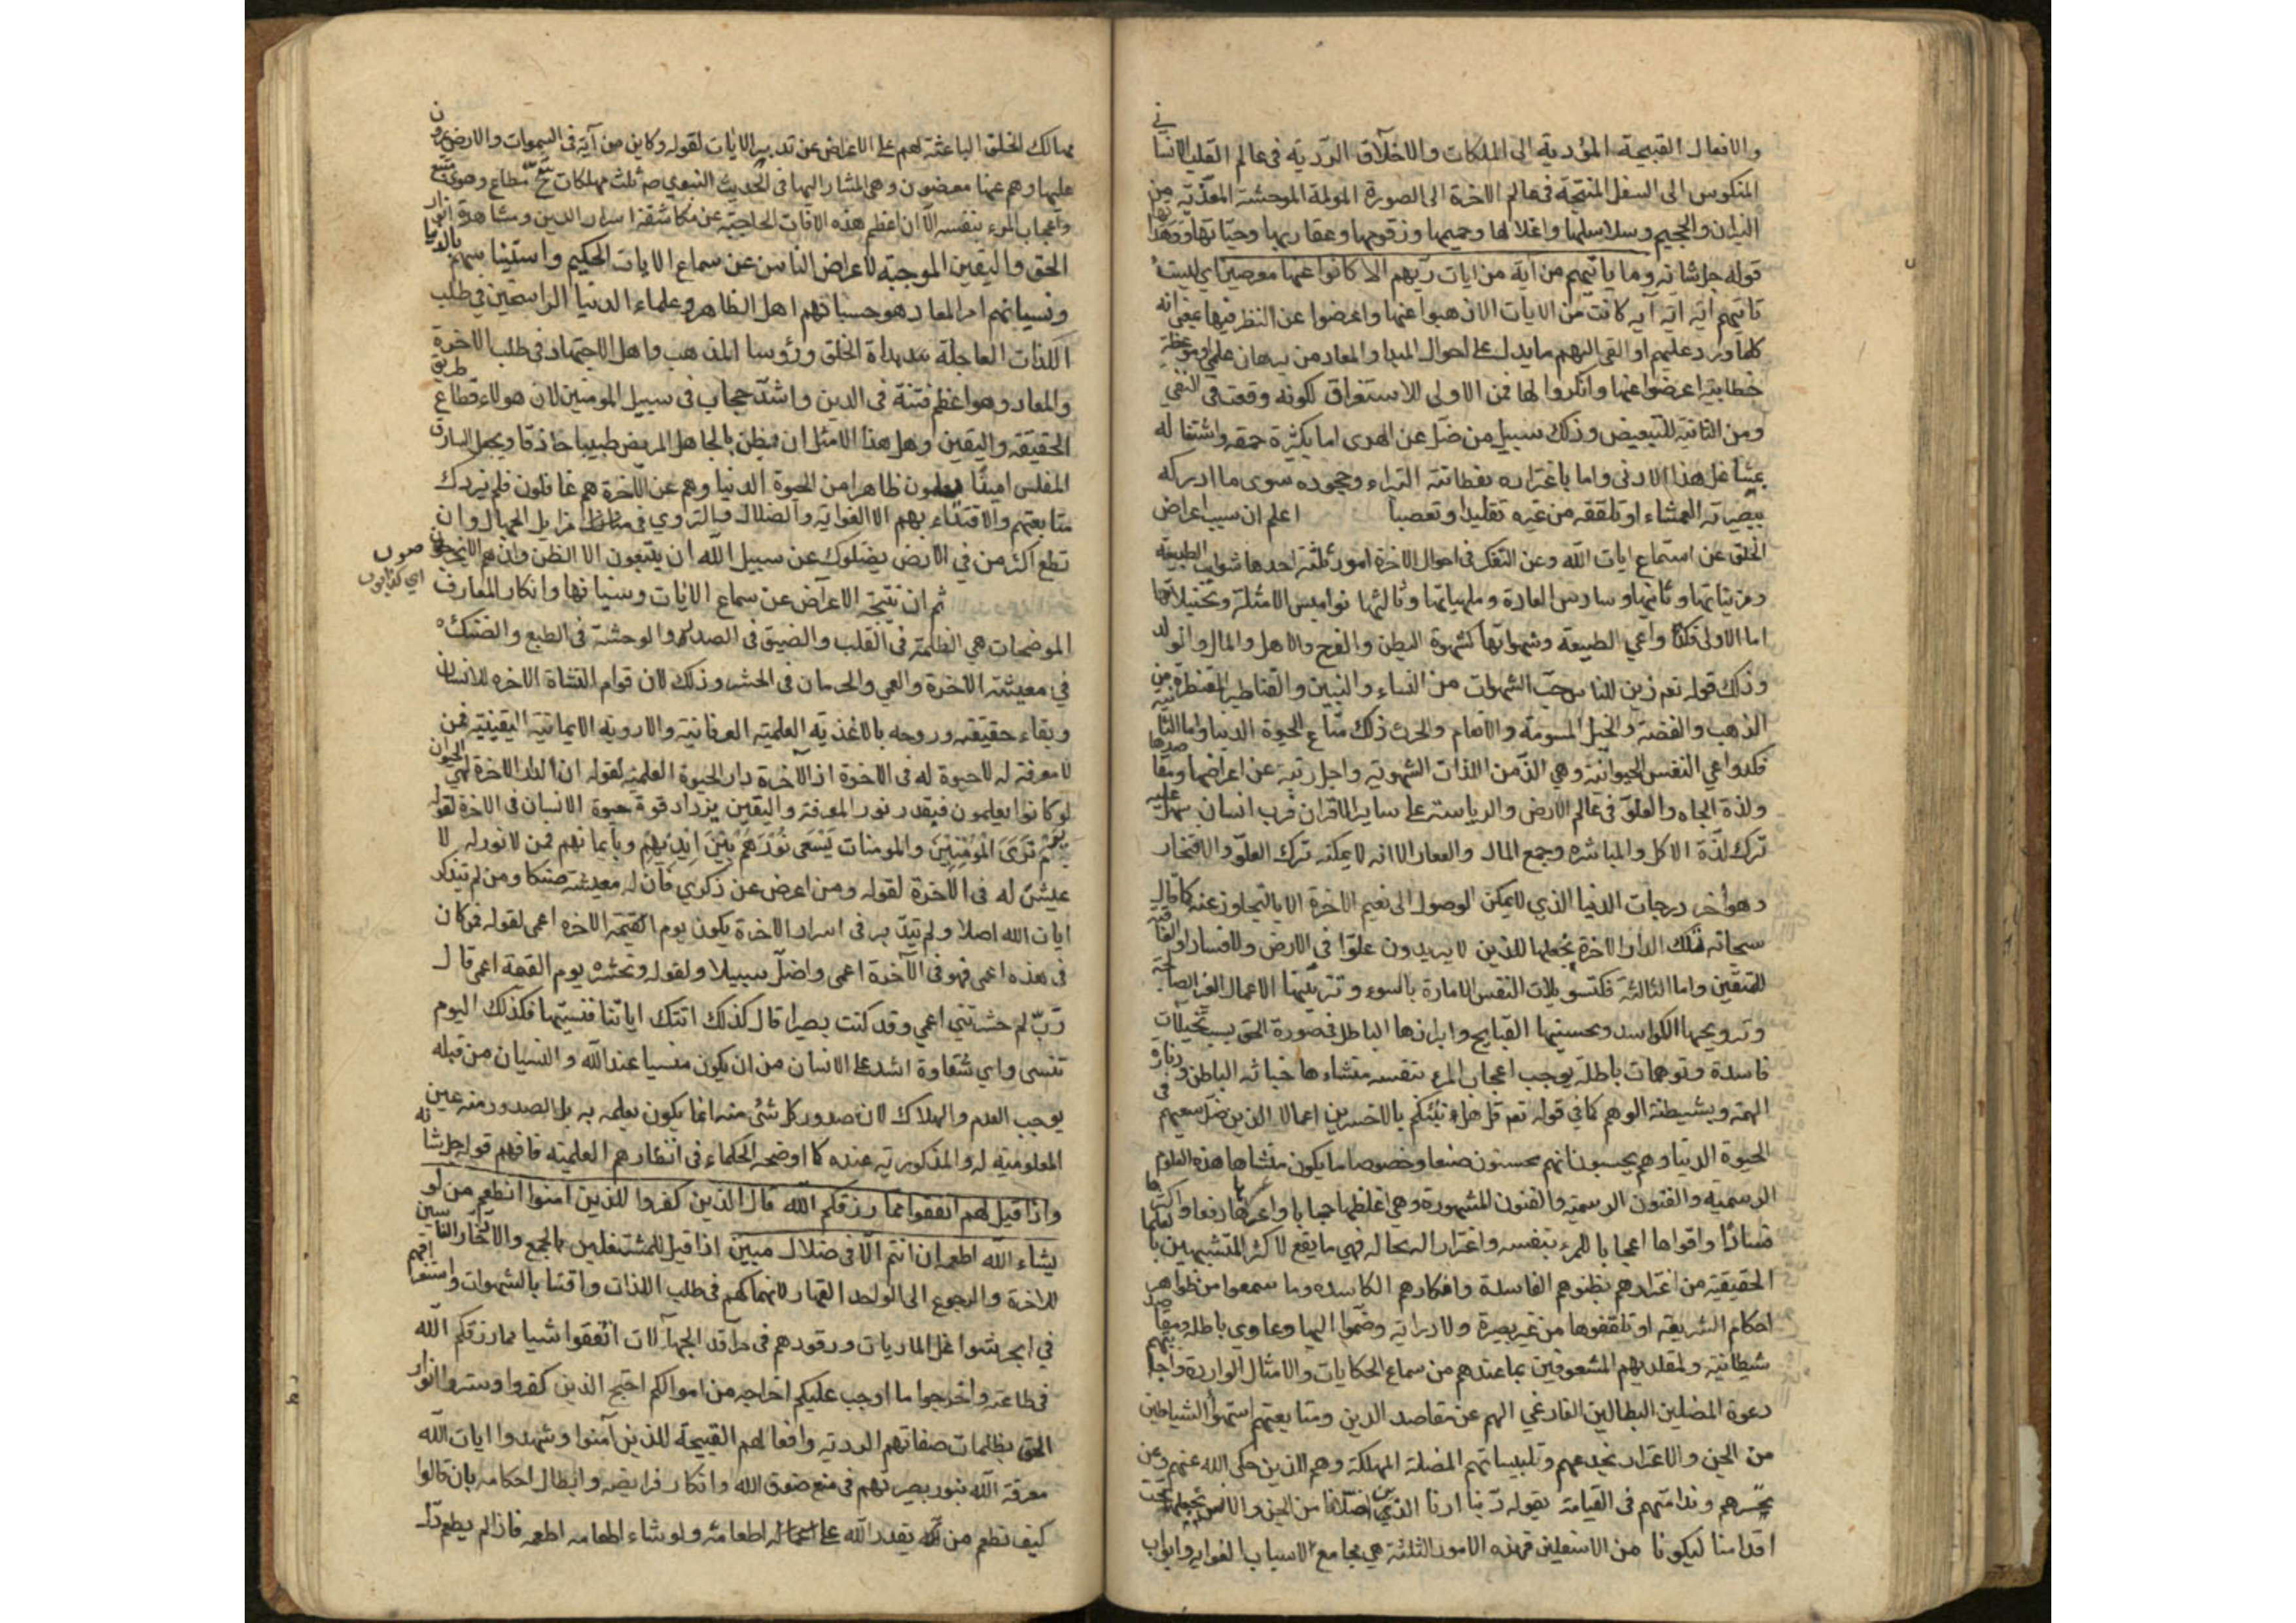 والافعال القبيحة المؤدية الى الملكات والاخلاق الردية فى عالم القلب الانسانى
المنكوس الى السفل المنتجة فى عالم الاخرة الى الصورة المولمة الموحشة المعذبة من
النيران والجحيم وسلاسلها واغلالها وحميمها وزقومها وعقاربها وحياتها
قوله جل شانه وما ياتيهم من آية من ايات ربهم الا كانوا عنها معرضين اى ليست
تاتيهم اية اية آية كانت من الايات الا ذهبوا عنها واعرضوا عن النظر فيها يعنى انه
كلما ورد عليهم او القى اليهم ما يدل على احوال المبدا والمعاد من برهان علمى او موعظة
خطابية اعرضوا عنها وانكروا لها فمن الاولى للاستغراق لكونه وقعت فى النفى
ومن الثانية للتبعيض وذلك سبيل من ضل عن الهدى اما بكثرة حمقه واشتغاله
بمشاغل هذا الادنى واما باغتراره بفطانته البتراء وجحوده سوى ما ادركه
ببصيرته العمشاء او تلقفه من غيره تقليدا وتعصبا اعلم ان سبب اعراض
الخلق عن استماع ايات الله وعن التفكر فى احوال الاخرة امور ثلثة احدها شوايب الطبيعة
ومزيناتها وثانيها وساوس العادة وملهياتها وثالثها نواميس الامثلة وتخييلاتها
اما الاولى فكدواعي الطبيعة وشهواتها كشهوة البطن والفرج والاهل والمال والولد
وذلك قوله تعم زين للناس حب الشهوات من النساء والبنين والقناطير المقنطرة من
الذهب والفضة والخيل المسومة والانعام والحرث ذلك متاع الحيوة الدنيا واما الثانية
فكدواعي النفس الحيوانية وهي الذ من اللذات الشهوية واجل رتبة عن اعراضها ومقاصدها
ولذة الجاه والعلو فى عالم الارض والرياسة على ساير الاقران فرب انسان سهل عليه
ترك لذة الاكل والمباشرة وجمع المال والعقار الا انه لا يمكنه ترك العلو والافتخار
وهو اخر درجات الدنيا الذي لا يمكن الوصول الى نعيم الاخرة الا بالتجاوز عنه كما قال
سبحانه تلك الدار الاخرة نجعلها للذين لا يريدون علوا في الارض ولا فسادا والعاقبة
للمتقين واما الثالثة فكتسويلات النفس الامارة بالسوء وتزيينها الاعمال الغير الصالحة
وترويجها الكواسد وتحسينها القبايح وابرازها الباطل فى صورة الحق بسبب تخيلات
فاسدة وتوهمات باطلة يوجب اعجاب المرء بنفسه منشاءها خباثة الباطن ودناءة
الهمة وبشيطنة الوهم كما في قوله تعم قل هل ننبئكم بالاخسرين اعمالا الذين ضل سعيهم فى
الحيوة الدنيا وهم يحسبون انهم يحسنون صنعا وخصوصا ما يكون منشاها هذه العلوم
الرسمية والفنون المشهورة وهى اغلظها حجابا واعسرها رفعا واكثرها
فسادا واقواها اعجابا للمرء بنفسه واغترارا بحاله فهي ما يقع لاكثر المتشبهين بالعلماء
الحقيقية من اغترارهم بظنونهم الفاسدة وافكارهم الكاسدة وما سمعوا من ظواهر
احكام الشريعة او تلقفوها من غير بصيرة ولا دراية وضموا اليها دعاوي باطلة ومقاصد
شيطانية ولمقلديهم المشعوفين بما عندهم من سماع الحكايات والامثال الواردة واجابتهم
دعوة المضلين البطالين الفارغي الهم عن مقاصد الدين ومتابعتهم استهواء الشياطين
من الجن والاغترار بخدعهم وتلبيساتهم المضلة المهلكة وهم الذين حكى الله عنهم وعن
تحسرهم وندامتهم فى القيامة بقوله ربنا ارنا الذين اضلانا من الجن والانس نجعلهما تحت
اقدامنا ليكونا من الاسفلين فهذه الامور الثلثة هي مجامع الاسباب الغواية وابواب
مهالك الخلق الباعثة لهم على الاعراض عن تدبير الايات لقوله وكاين من آية فى السموات والارض يمرون
عليها وهم عنها معرضون وهي المشار اليها فى الحديث النبوي ص ثلث مهلكات شح مطاع وهوى متبع
واعجاب المرء بنفسه الا ان اعظم هذه الافات الحاجبة عن مكاشفة اسرار الدين ومشاهدة انوار
الحق واليقين الموجبة لاعراض الناس عن سماع الايات الحكيم واستيناسهم بالدنيا
ونسيانهم امر المعاد هو حسبانهم اهل الظاهر وعلماء الدنيا الراسخين في طلب
اللذات العاجلة هداة الخلق ورؤسا المذهب واهل الاجتهاد فى طلب الاخرة
والمعاد وهو اعظم فتنة فى الدين واشد حجاب فى سبيل المومنين لان هولاء قطاع طريق
الحقيقة واليقين وهل هذا الا مثل ان يظن بالجاهل المريض طبيبا حاذقا ويجعل السارق
المفلس امينا يعلمون ظاهرا من الحيوة الدنيا وهم عن الاخرة هم غافلون فلم يزدك
متابعتهم والاقتداء بهم الا الغواية والضلال والتردي فى مزابل الجهال وان
تطع اكثر من في الارض يضلوك عن سبيل الله ان يتبعون الا الظن وان هم الا يخرصون
اي كذابون
ثم ان نتيجة الاعراض عن سماع الايات ونسيانها وانكار المعارف
الموضحات هي الظلمة فى القلب والضيق فى الصدر والوحشة فى الطبع والضنك
في معيشة الاخرة والعمي والحرمان فى الحشر وذلك لان قوام النشاة الاخرة للانسان
وبقاء حقيقته وروحه بالاغذية العلمية العرفانية والادوية الايمانية اليقينية فمن
لا معرفة له لا حيوة له فى الاخرة اذ الاخرة دار الحيوة العلمية لقوله ان الدار الاخرة لهي الحيوان
لو كانوا يعلمون فبقدر نور المعرفة واليقين يزداد قوة حيوة الانسان فى الاخرة لقوله
يوم ترى المؤمنين والمومنات يسعى نورهم بين ايديهم وبايمانهم فمن لا نور له لا
عيشة له فى الاخرة لقوله ومن اعرض عن ذكري فان له معيشة ضنكا ومن لم يتذكر
ايات الله اصلا ولم يتدبر فى اسرار الاخرة يكون يوم القيمة الاخرة اعمى لقوله فمن كان
فى هذه اعمى فهو فى الآخرة اعمى واضل سبيلا ولقوله ونحشره يوم القيمة اعمى قال
رب لم حشرتني اعمي وقد كنت بصيرا قال كذلك اتتك اياتنا فنسيتها فكذلك اليوم
تنسى واي شقاوة اشد على الانسان من ان يكون منسيا عند الله والنسيان من قبله
يوجب العدم والهلاك لان صدور كل شئ منه انما يكون بعلمه به بل الصدور منه عين
المعلومية له والمذكورية عنده كما اوضحه الحكماء فى انظارهم العلمية فافهم قوله جل شانه
واذا قيل لهم انفقوا مما رزقكم الله قال الذين كفروا للذين امنوا انطعم من لو
يشاء الله اطعمه ان انتم الا فى ضلال مبين اذا قيل للمشتغلين بالجمع والادخار الناسين
للاخرة والرجوع الى الواحد القهار لانهماكهم فى طلب اللذات واقتنا بالشهوات واستغراقهم
في ابحر شواغل الماديات ورقودهم فى مراقد الجهالات انفقوا شيا مما رزقكم الله
فى طاعته واخرجوا ما اوجب عليكم اخراجه من اموالكم احتج الذين كفروا وستروا انوار
الحق بظلمات صفاتهم الردية وافعالهم القبيحة للذين آمنوا وشهدوا ايات الله
معرفة الله بنور بصيرتهم فى منع حقوق الله وانكار فرايضه وابطال احكامه بان قالوا
كيف نطعم من يقدر الله على اطعامه ولو شاء اطعامه اطعمه فاذا لم يطعم دل